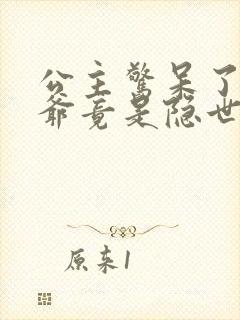 公主驚呆了
爺竟是隐世
原来1